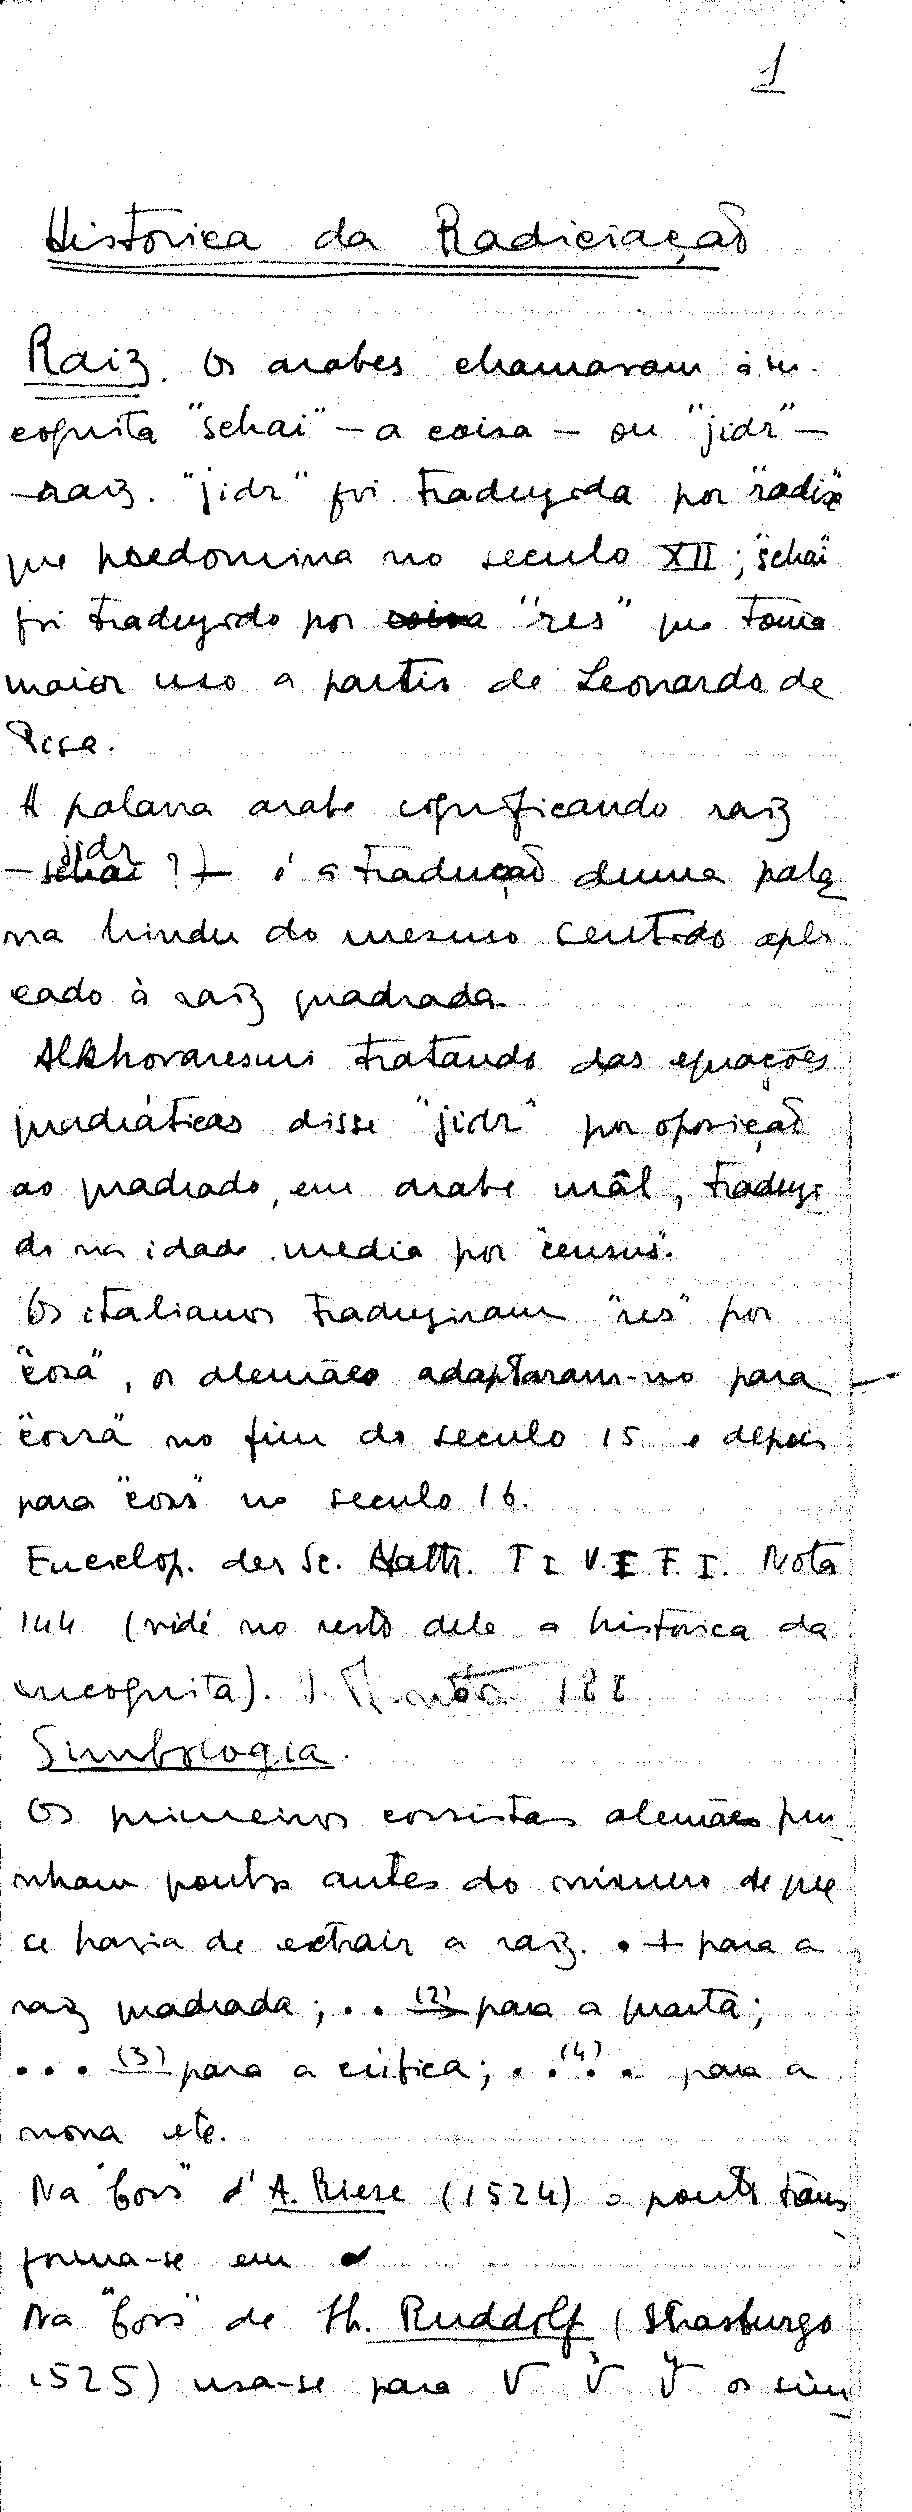 1
Historica da Radiciação
Raiz. Os arabes chamavam á in-
cognita "schai" — a coisa — ou "jidr" —
— raiz. "jidr" foi traduzida por "radix"
que predomina no seculo XII; "schai"
foi traduzido por coisa "res" que toma
maior uso a partir de Leonardo de
Pisa.
A palavra arabe significando raiz
jidr
— schai ?) — é a tradução duma pala
vra hindu do mesmo sentido apli
cado à raiz quadrada.
Alkhovaresmi tratando das equações
quadráticas disse "jidr" por oposição
ao quadrado, em arabe mâl, traduzi
do na idade media por "census".
Os italianos traduziram "res" por
"cosa", os alemães adaptaram-no para
"cossa" no fim do seculo 15 e depois
para "coss" no seculo 16.
Encielop. des Sc. Math. T I V. I F. I. Nota
144 (vidé no resto dele a historica da
incognita). 188
Simbologia.
Os primeiros cossistas alemães pu
nham pontos antes do número de que
se havia de extrair a raiz. • + para a
raiz quadrada; • • (2) para a quarta;
• • • (3) para a cúbica; • • • • (4) para a
nona etc.
Na "Coss" d'A. Riese (1524) o ponto trans
forma-se em
Na "Coss" de Ch. Ruddolf (Strasburgo
1525) usa-se para √ √ √ os sim